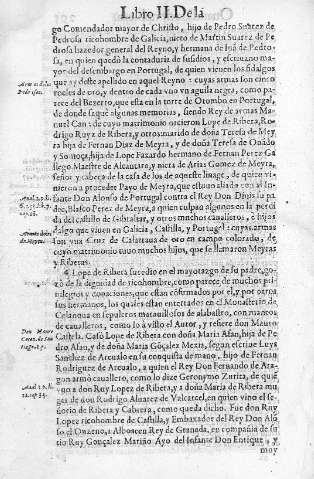 Libro II. De la
go Comendador mayor de Christo, hijo de Pedro Suarez de
Pedrosa ricohombre de Galicia, nieto de Martin Suarez de Pe
drosa hazedor general del Reyno, y hermana de Ina de Pedro-
sa, en quien quedò la contaduria de susidios, y escriuano ma
yor del desembargo en Portugal, de quien vienen los hidalgos
que ay deste apellido en aquel Reyno: cuyas armas son cinco
roeles de oro, y dentro de cada vno vn aguila negra, como pa
rece del Bezerro, que està en la torre de Otombo en Portugal,
de donde saquè algunas memorias, siendo Rey de armas Ma
nuel de cuyo matrimonio nacieron Lope de Ribera, Ro
drigo Ruyz de Ribera, y otros marido de doña Teresa de Mey
ra hija de Fernan Diaz de Meyra, y de doña Teresa de Ouado
y Somoça, hija de Lope Fazardo hermano de Fernan Perez Ga
llego Maestre de Alcantara, y nieta de Arias Gomez de Meyra,
Señor y cabeça de la casa de los de aqueste linage, de quien vi-
nieron a proceder Payo de Meyra, que estuuo aliado con al In-
fante Don Alonso de Portugal contra el Rey Don Dinis su pa
dre, Blasco Perez de Meyra, a quien culpan algunos en la perdi
da del castillo de Gibraltar, y otros muchos caualleros, è hijos
dalgo que viuen en Galicia, Castilla, y Portugal: cuyas armas
son vna Cruz de Calatraua de oro en campo colorado, de
cuyo matrimonio tuuo muchos hijos, que se llamaron Meyras
y Riberas.
Lope de Ribera sucedio en el mayorazgo de su padre, go-
zò de la dignidad de ricohombre, como parece de muchos pri-
uilegios y donaciones, que estan cõfirmados por el, y por otros
sus hermanos, los quales estan enterrados en el Monasterio de
Celanoua en sepulcros marauillosos de alabastro, con maneras
de caualleros, como lo à visto el Autor, y refiere don Mauro
Castela. Casò Lope de Ribera con doña Maria Afan, hija de Pe
dro Afan, y de doña Maria Gõçalez Mexia, segun escriue Luys
Sanchez de Arcualo en su conquista de mano, hijo de Fernan
Rodriguez de Arcualo, a quien el Rey Don Fernando de Ara-
gon armò cauallero, como lo dize Geronymo Zurita, de quiẽ
vino a don Ruy Lopez de Ribera, y a doña Maria de Ribera mu
ger de don Rodrigo Aluarez de Valcarcel, en quien vino el se-
ñorio de Ribera y Cabrera, como queda dicho. Fue don Ruy
Lopez ricohombre de Castilla, y Embaxador del Rey Don Alõ
so el Onzeno, a Alboacen Rey de Granada, en compañia de su
tio Ruy Gonçalez Mariño Ayo del Infante Don Enrique, y
muy